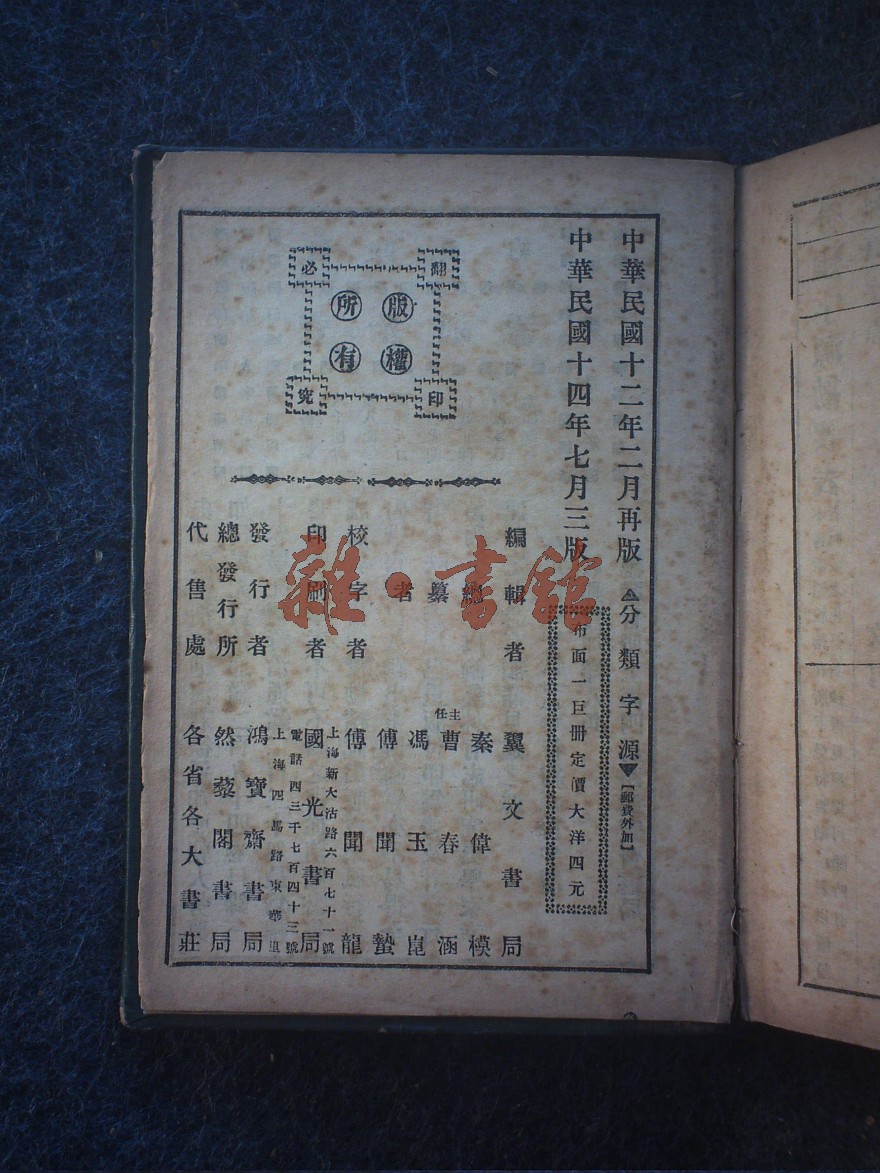 中華民國十二年二月再版
中華民國十四年七月三版
分類字源
【郵費外加】
布面一巨冊定價大洋四元
翻印必究
版權所有
編輯者 翼文書局
總纂者
秦偉模
主任 曹春涵
馮玉崑
傅聞蟄
校字者 傅聞龍
印刷者 國光書局
上海新大沽路六百七十一號
電話四三千七百四十三號
發行者 鴻寶齋書局
上海四馬路東華里
總發行所 然藜閣書局
代售處 各省各大書莊
雜·書館